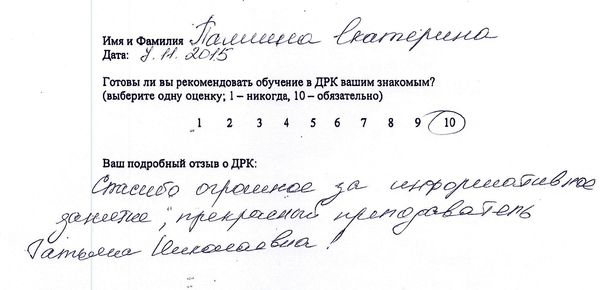 Имя и Фамилия Палшина Екатерина
Дата: 7.11.2015
Готовы ли вы рекомендовать обучение в ДРК вашим знакомым?
(выберите одну оценку; 1 – никогда, 10 – обязательно)
1 2 3 4 5 6 7 8 9 10
Ваш подробный отзыв о ДРК:
Спасибо огромное за информативное
занятие, прекрасный преподаватель
Татьяна Николаевна!